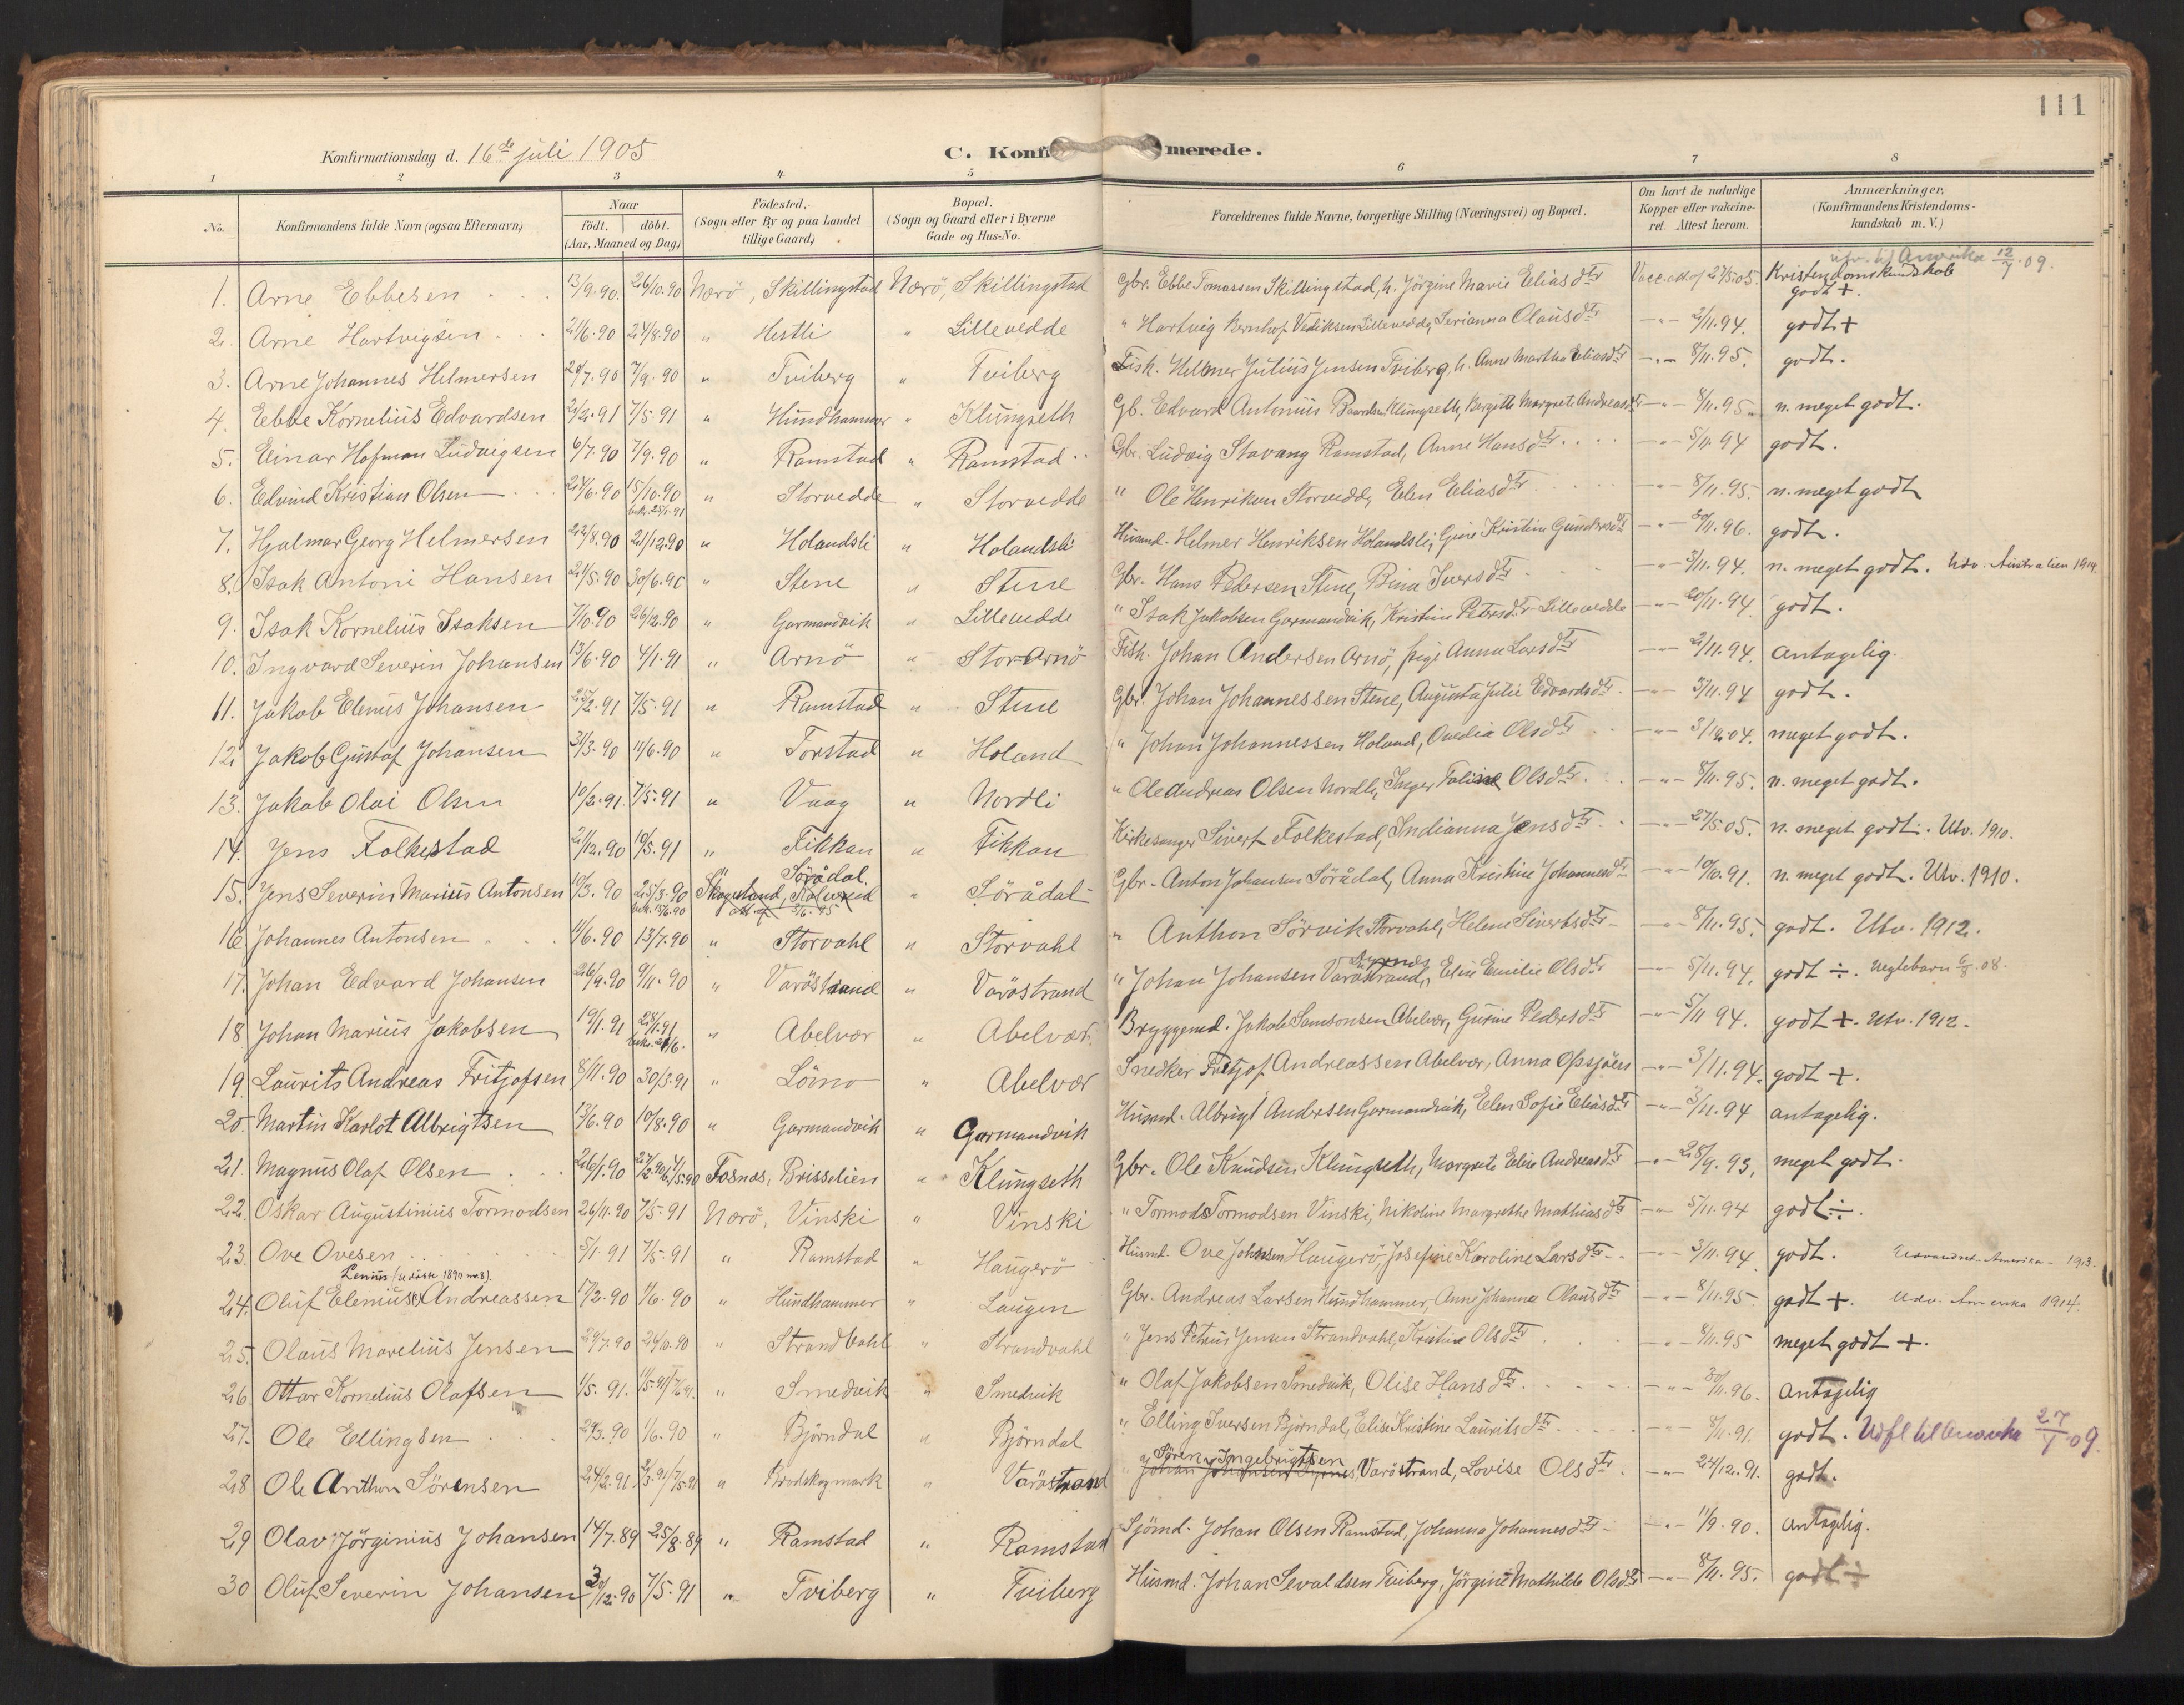 111
Konfirmationsdag d. 16de juli 1905
C. Konfirmerede.
1 2 3 4 5 6 7 8
No.
Konfirmandens fulde Navn (ogsaa Efternavn)
Naar
født. døbt.
(Aar, Maaned og Dag)
Fødested.
(Sogn eller By og paa Landet tillige Gaard)
Bopæl.
(Sogn og Gaard eller i Byerne Gade og Hus-No.
Forældrenes fulde Navne, borgerlige Stilling (Næringsvei) og Bopæl.
Om havt de naturlige Kopper eller vaccineret. Attest herom.
Anmærkninger.
(Konfirmandens Kristendomskundskab m. V.)
utv. til Amerika 12/7 09.
1. Arne Ebbesen 13/9.90. 26/10.90 Nærö, Skillingstad Nærö, Skillingstad Gbr. Ebbe Tomassen Skillingstad, h. Jörgine Marie Eliasdtr Vacc. att. af 27/5.05. Kristendomskundskab godt +.
2. Arne Hartvigsen 2/6.90 24/8.90 " Hestli " Lillevedde " Hartvig Bernhof Vediksen Lillevedde, Serianna Olausdtr -"- 2/11.94. godt +
3. Arne Johannes Helmersen 20/7.90 7/9.90 " Tviberg " Tviberg Fisk. Helmer Julius Jensen Tviberg, h. Anne Martha Eliasdtr -"- 8/11.95. godt.
4. Ebbe Kornelius Edvardsen 2/2.91 7/5.91 " Hundhammer " Klungseth Gb. Edvard Antonius Baardsen Klungseth, Bergitte Margrete Andreasdtr -"- 8/11.95. n. meget godt.
5. Einar Hofman Ludvigsen 6/7.90 7/9.90 " Ramstad " Ramstad Gbr. Ludvig Stavang Ramstad, Anne Hansdtr -"- 5/11.94 godt.
6. Edvind Kristian Olsen 24/6.90 15/10.90 bekr. 25/1.91 " Storvedde " Storvedde " Ole Henriksen Storvedde, Elen Eliasdtr -"- 8/11.95. n. meget godt
7. Hjalmar Georg Helmersen 22/8.90 21/12.90 " Holandsli " Holandsli Husmd. Helmer Henriksen Holandsli, Gurie Kristine Gundersdtr -"- 30/11.96. godt.
8. Isak Antoni Hansen 21/5.90 30/6.90 " Stene " Stene Gbr. Hans Pedersen Stene, Bina Iversdtr -"- 3/11.94. n. meget godt. Udv. Australien 1914.
9. Isak Kornelius Isaksen 7/10.90 26/12.90 " Garmandvik " Lillevedde " Isak Jakobsen Garmandvik, Kristine Petersdtr Lillevedde -"- 20/11.94. godt.
10. Ingvard Severin Johansen 13/6.90 4/1.91 " Arnö " Stor-Arnö Fisk. Johan Andersen Arnö, pige Anna Larsdtr -"- 2/11.94. antagelig.
11. Jakob Elenius Johansen 25/2.91 7/5.91 " Ramstad " Stene Gbr. Johan Johannessen Stene, Augusta Julie Edvardsdtr -"- 3/11.94 godt.
12. Jakob Gustaf Johansen 31/3.90 11/6.90 " Torstad " Holand " Johan Johannessen Holand, Ovedia Olsdtr -"- 3/12.04. meget godt.
13. Jakob Olai Olsen 10/2.91. 7/5.91 " Vaag " Nordli " Ole Andreas Olsen Nordli, Inger Olsdtr -"- 8/11.95. n. meget godt.
14. Jens Folkestad 21/12.90 10/5.91 " Fikkan " Fikkan Kirkesanger Sivert Folkestad, Indianna Jensdtr -"- 27/5.05. n. meget godt. Utv. 1910.
15. Jens Severin Marius Antonsen 10/3.90 25/3.90 bekr. 15/6.90 Sörådal. Skageland, Kolvereid " Sörådal Gbr. Anton Johansen Sörådal, Anna Kristine Johannesdtr -"- 10/10.91. n. meget godt. Utv. 1910.
16 Johannes Antonsen 11/6.90 13/7.90 " Storvahl " Storvahl " Anthon Sörvik Storvahl, Helene Sivertsdtr -"- 8/11.95. godt. Utv. 1912.
17. Johan Edvard Johansen 26/9.90 9/11.90 " Varöstrand " Varöstrand " Johan Johansen Varöstrand, Elise Emilie Olsdtr -"- 5/11.94. godt ÷. Uegtebarn 6/8.08.
18 Johan Marius Jakobsen 19/1.91 28/1.91 bekr. 21/6. " Abelvær " Abelvær. Bryggemd. Jakob Samsonsen Abelvær, Gurine Pedersdtr -"- 5/11 94. godt +. Utv. 1912.
19. Laurits Andreas Fritjofsen 8/11.90 30/3.91 " Lömo " Abelvær Snedker Fritjof Andreassen Abelvær, Anna Opsjöen -"- 3/11.94. godt +.
20. Martin Karlot Albrigtsen 13/6.90 10/8.90 " Garmandvik " Garmandvik Husmd. Albrigt Andersen Garmandvik, Elen Sofie Eliasdtr -"- 3/11.94 antagelig.
21. Magnus Olaf Olsen 26/1.90 Fosnæs, Brisselien " Klungseth Gbr. Ole Knudsen Klungseth, Margrete Elise Andreasdtr -"- 28/9.93. meget godt.
22. Oskar Augustinius Tormodsen 26/11.90 7/5.91 Nærö, Vinski " Vinski " Tormod Tormodsen Vinski, Nikoline Margrethe Mathiasdtr -"- 5/11.94 godt ÷.
23. Ove Ovesen 5/1 91 7/5.91 " Ramstad " Haugerö Husmd. Ove Johnsen Haugerö, Josefine Karoline Larsdtr -"- 3/11.94. godt. Udvandret Amerika 1913.
Lenius (se döbte 1890 no 8).
24. Oluf Elenius Andreassen 17/2.90 1/6.90 " Hundhammer " Laugen Gbr. Andreas Larsen Hundhammer, Anne Johanna Olausdtr -"- 8/11.95. godt +. Udv. Amerika 1914.
25. Olaus Marelius Jensen 29/7.90 26/10.90 " Strandvahl " Strandvahl " Jens Petrus Jensen Strandvahl, Kristine Olsdtr -"- 8/11.95 meget godt +.
26. Ottar Kornelius Olafsen 1/5.91. " Smedvik " Smedvik " Olaf Jakobsen Smedvik, Olise Hansdtr -"- 30/11.96. antagelig
27. Ole Ellingsen 29/3.90 1/6.90 " Björndal " Björndal " Elling Iversen Björndal, Elise Kristine Lauritsdtr -"- 8/11.91. godt. Udfl til Amerika 27/1 09.
28 Ole Anthon Sörensen 24/2.91 " Brodskogmark " Varöstrand " Sören Ingebrigtsen Varöstrand, Lovise Olsdtr -"- 24/12.91. godt.
29 Olav Jörginius Johansen 14/7.89 25/8.89 " Ramstad " Ramstad Sjömd. Johan Olsen Ramstad, Johanna Johannesdtr -"- 11/9.90. antagelig.
30 Oluf Severin Johansen 30/12.90 7/5.91 " Tviberg " Tviberg Husmd. Johan Sevaldsen Tviberg, Jörgine Mathilde Olsdtr -"- 8/11.95. godt ÷